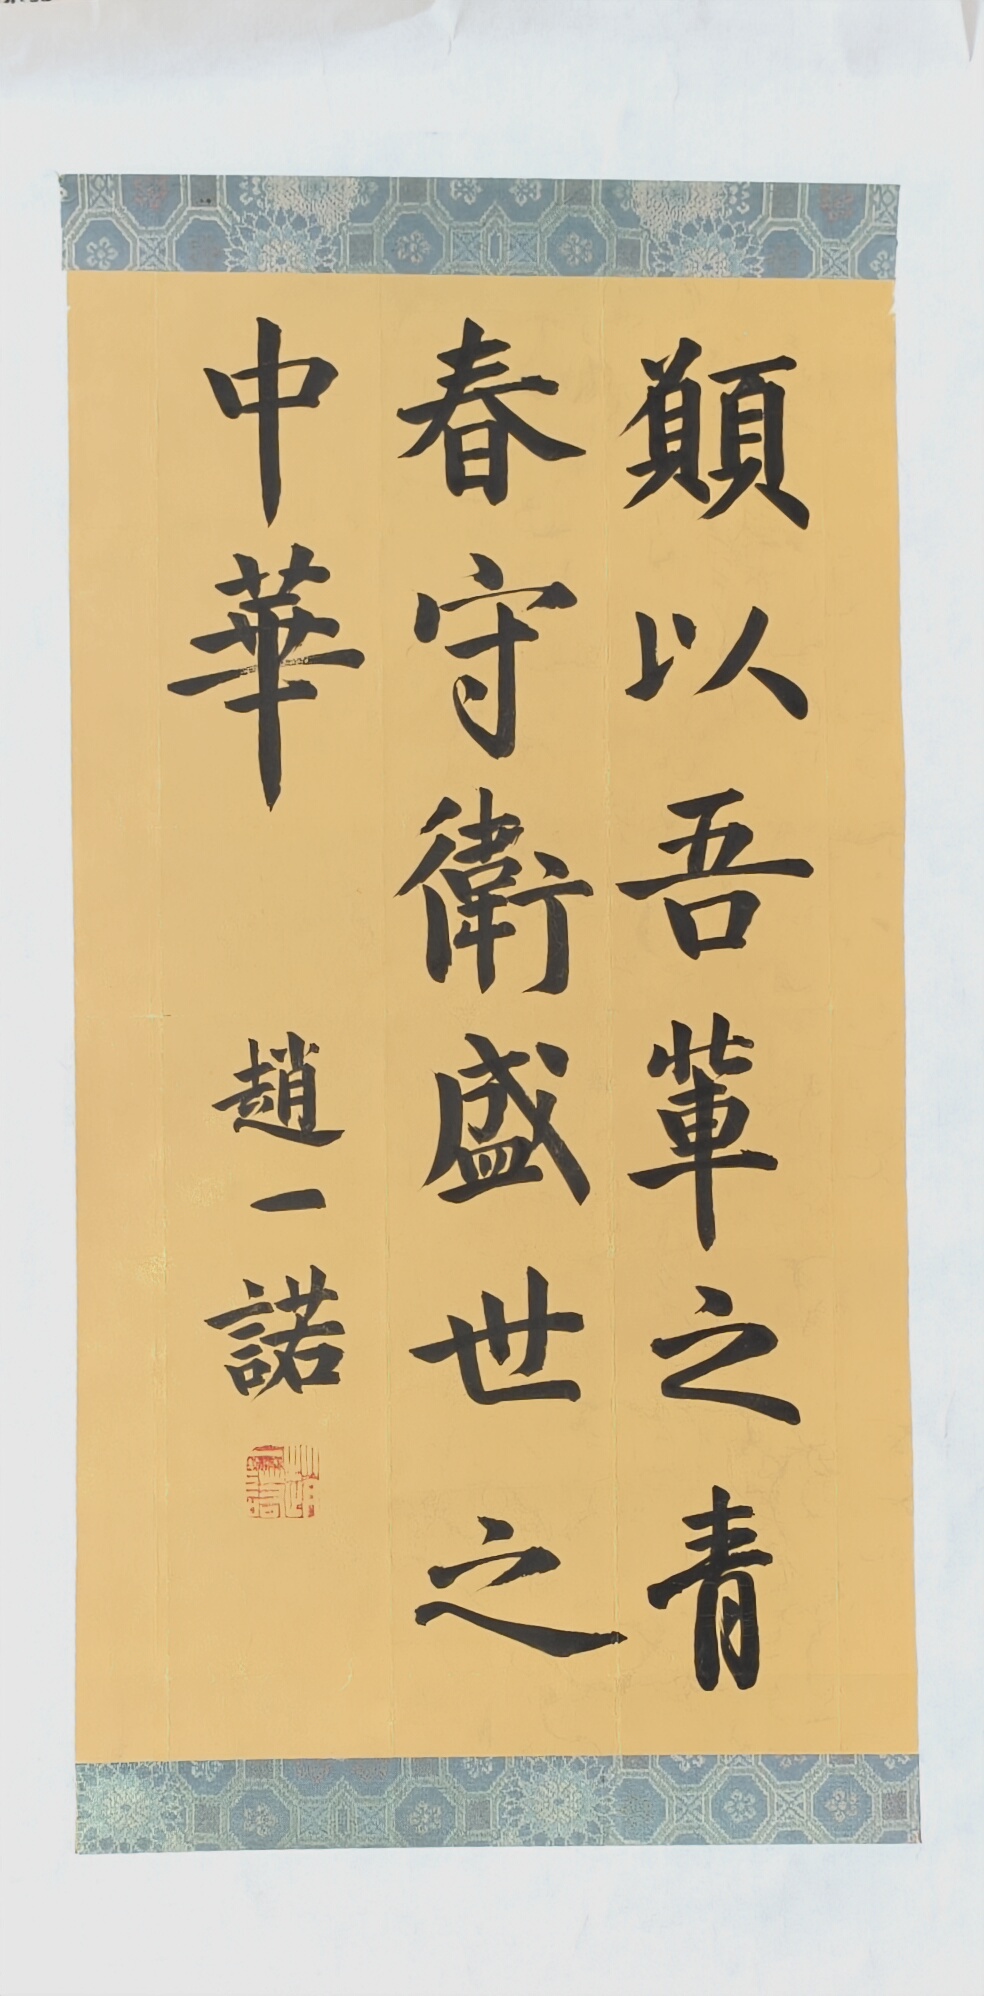 願以吾輩之青
春守衛盛世之
中華
趙一諾